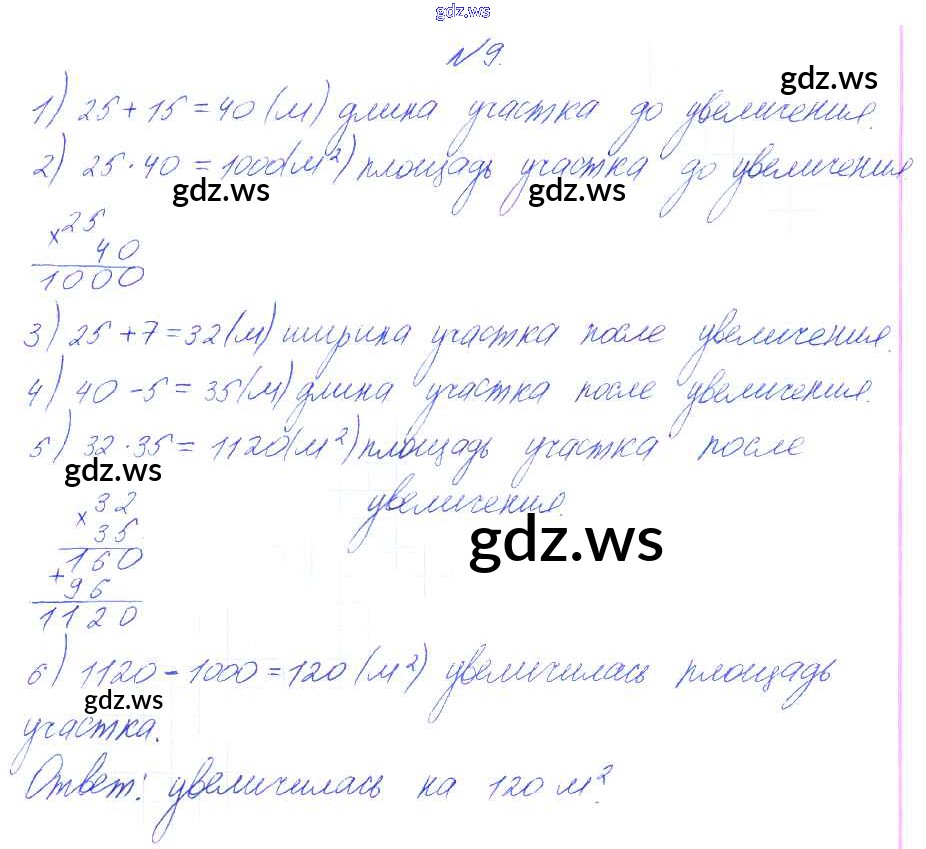 gdz.ws
№9.
gdz.ws
1) 25 + 15 = 40 (м) длина участка до увеличения.
2) 25 · 40 = 1000(м²) площадь участка до увеличения.
gdz.ws gdz.ws
× 25
40
1000
3) 25 + 7 = 32 (м) ширина участка после увеличения.
4) 40 - 5 = 35 (м) длина участка после увеличения.
5) 32 · 35 = 1120(м²) площадь участка после
gdz.ws
увеличения.
× 32
35
gdz.ws
160
+ 96
1120
6) 1120 - 1000 = 120 (м²) увеличилась площадь
gdz.ws
участка.
Ответ: увеличилась на 120 м².